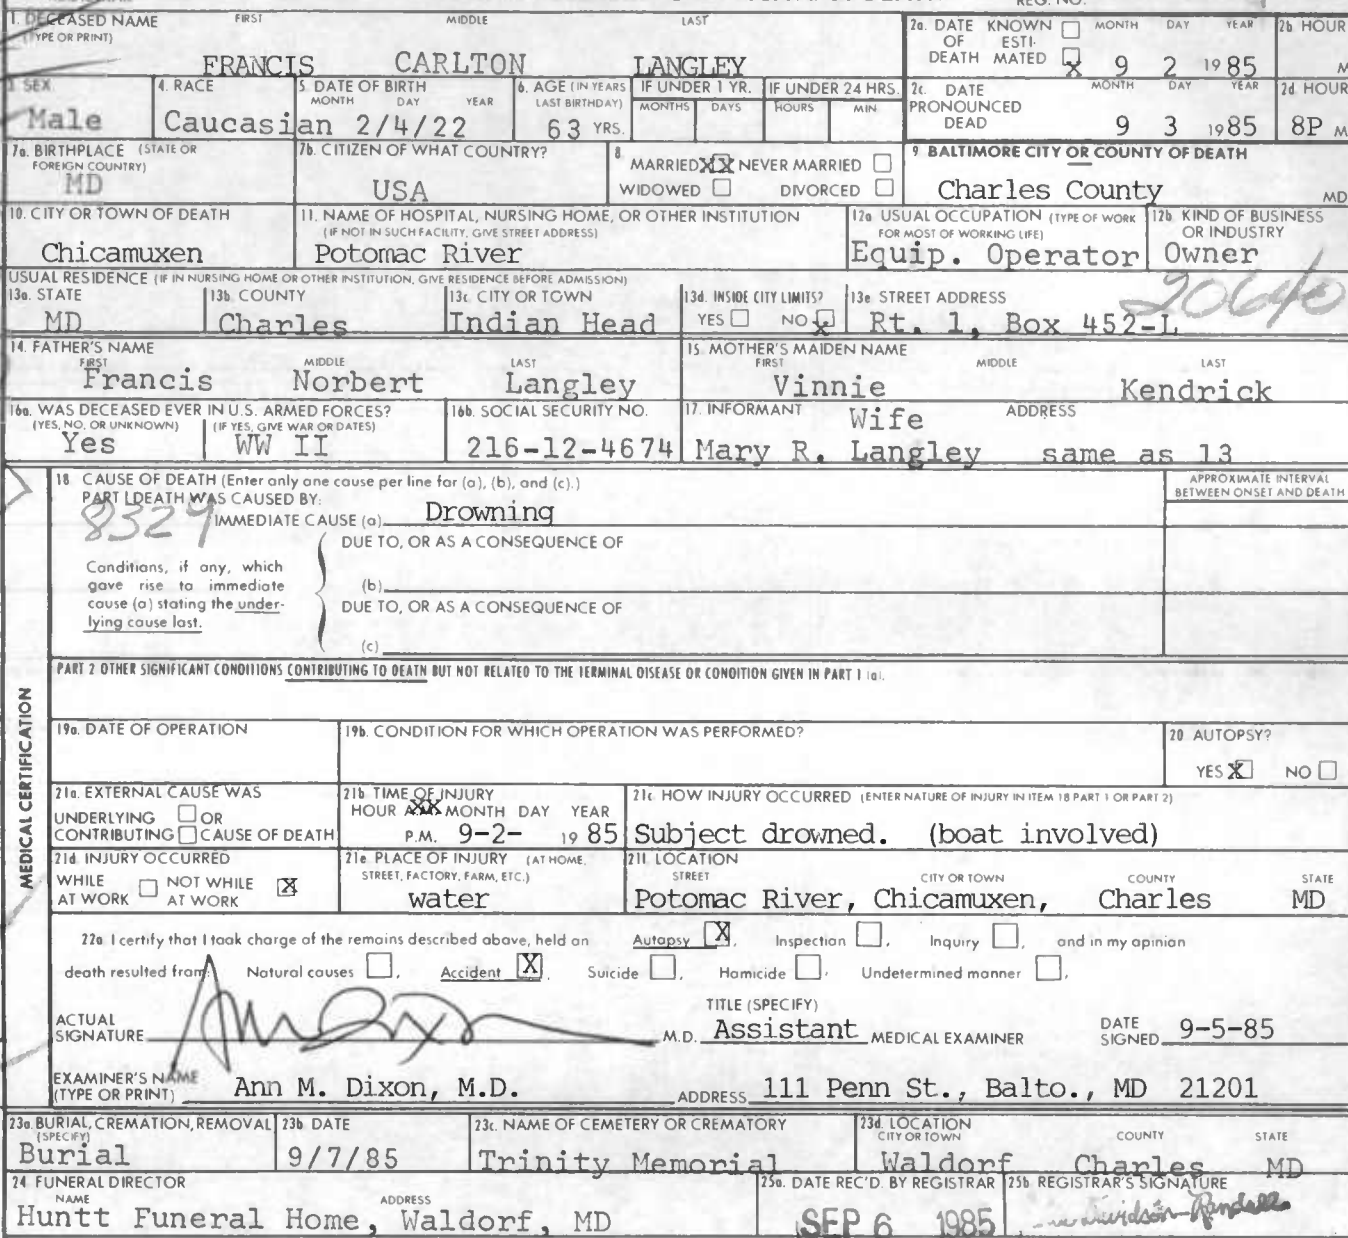 REG. NO.
1. DECEASED NAME FIRST MIDDLE LAST
(TYPE OR PRINT)
FRANCIS CARLTON LANGLEY
2a. DATE OF DEATH KNOWN ☐ ESTIMATED ☒ MONTH DAY YEAR
9 2 1985
2b HOUR
M
3 SEX
Male
4. RACE
Caucasian
5. DATE OF BIRTH
MONTH DAY YEAR
2/4/22
6. AGE (IN YEARS LAST BIRTHDAY)
63 YRS.
IF UNDER 1 YR.
MONTHS DAYS
IF UNDER 24 HRS.
HOURS MIN
2c. DATE PRONOUNCED DEAD
MONTH DAY YEAR
9 3 1985
2d. HOUR
8P M
7a. BIRTHPLACE (STATE OR FOREIGN COUNTRY)
MD
7b. CITIZEN OF WHAT COUNTRY?
USA
8
MARRIED XX NEVER MARRIED ☐
WIDOWED ☐ DIVORCED ☐
9 BALTIMORE CITY OR COUNTY OF DEATH
Charles County MD
10. CITY OR TOWN OF DEATH
Chicamuxen
11. NAME OF HOSPITAL, NURSING HOME, OR OTHER INSTITUTION
(IF NOT IN SUCH FACILITY, GIVE STREET ADDRESS)
Potomac River
12a USUAL OCCUPATION (TYPE OF WORK FOR MOST OF WORKING LIFE)
Equip. Operator
12b. KIND OF BUSINESS OR INDUSTRY
Owner
USUAL RESIDENCE (IF IN NURSING HOME OR OTHER INSTITUTION, GIVE RESIDENCE BEFORE ADMISSION)
13a. STATE
MD
13b. COUNTY
Charles
13c CITY OR TOWN
Indian Head
13d. INSIDE CITY LIMITS?
YES ☐ NO ☒
13e STREET ADDRESS
Rt. 1, Box 452-L
20640
14. FATHER'S NAME
FIRST MIDDLE LAST
Francis Norbert Langley
15. MOTHER'S MAIDEN NAME
FIRST MIDDLE LAST
Vinnie Kendrick
16a. WAS DECEASED EVER IN U.S. ARMED FORCES?
(YES, NO, OR UNKNOWN) (IF YES, GIVE WAR OR DATES)
Yes WW II
16b. SOCIAL SECURITY NO.
216-12-4674
17. INFORMANT ADDRESS
Wife
Mary R. Langley same as 13
18 CAUSE OF DEATH (Enter only one cause per line for (a), (b), and (c).)
APPROXIMATE INTERVAL
BETWEEN ONSET AND DEATH
PART I DEATH WAS CAUSED BY:
8329
IMMEDIATE CAUSE (a) Drowning
DUE TO, OR AS A CONSEQUENCE OF
Conditions, if any, which
gave rise to immediate
cause (a) stating the under-
lying cause last.
(b)
DUE TO, OR AS A CONSEQUENCE OF
(c)
PART 2 OTHER SIGNIFICANT CONDITIONS CONTRIBUTING TO DEATH BUT NOT RELATED TO THE TERMINAL DISEASE OR CONDITION GIVEN IN PART 1 (a).
MEDICAL CERTIFICATION
19a. DATE OF OPERATION
19b. CONDITION FOR WHICH OPERATION WAS PERFORMED?
20 AUTOPSY?
YES ☒ NO ☐
21a. EXTERNAL CAUSE WAS
UNDERLYING ☐ OR
CONTRIBUTING ☐ CAUSE OF DEATH
21b TIME OF INJURY
HOUR A.M. MONTH DAY YEAR
P.M. 9-2- 19 85
21c. HOW INJURY OCCURRED (ENTER NATURE OF INJURY IN ITEM 18 PART 1 OR PART 2)
Subject drowned. (boat involved)
21d. INJURY OCCURRED
WHILE AT WORK ☐ NOT WHILE AT WORK ☒
21e. PLACE OF INJURY (AT HOME, STREET, FACTORY, FARM, ETC.)
water
21f. LOCATION
STREET CITY OR TOWN COUNTY STATE
Potomac River, Chicamuxen, Charles MD
22a I certify that I took charge of the remains described above, held an Autopsy ☒, Inspection ☐, Inquiry ☐, and in my opinion
death resulted from: Natural causes ☐, Accident ☒, Suicide ☐, Homicide ☐, Undetermined manner ☐,
ACTUAL SIGNATURE Ann Dixon M.D.
TITLE (SPECIFY)
Assistant MEDICAL EXAMINER
DATE SIGNED 9-5-85
EXAMINER'S NAME
(TYPE OR PRINT) Ann M. Dixon, M.D. ADDRESS 111 Penn St., Balto., MD 21201
23a. BURIAL, CREMATION, REMOVAL (SPECIFY)
Burial
23b DATE
9/7/85
23c. NAME OF CEMETERY OR CREMATORY
Trinity Memorial
23d. LOCATION
CITY OR TOWN COUNTY STATE
Waldorf Charles MD
24 FUNERAL DIRECTOR
NAME ADDRESS
Huntt Funeral Home, Waldorf, MD
25a. DATE REC'D. BY REGISTRAR
SEP 6 1985
25b REGISTRAR'S SIGNATURE
Davidson-Randall